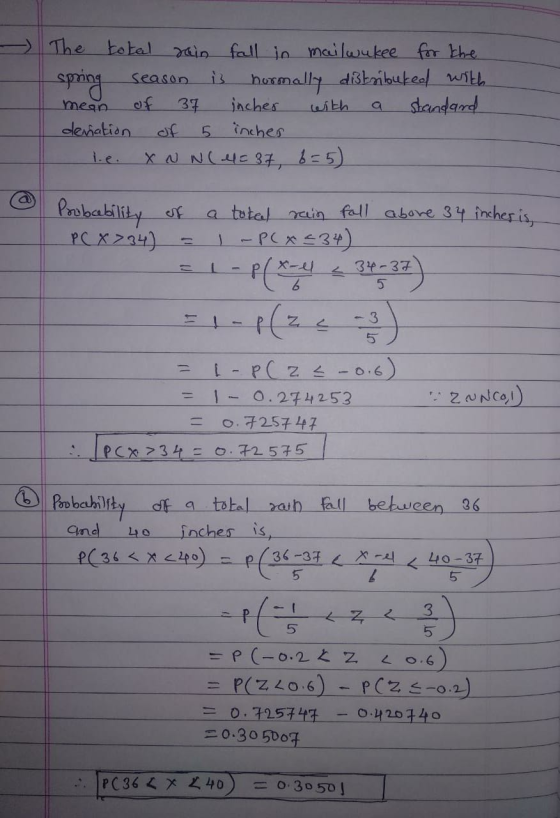 → The total rain fall in mailwukee for the
spring season is normally distributed with
mean of 37 inches with a standard
deviation of 5 inches
i.e. X ~ N(μ=37, σ=5)
ⓐ Probability of a total rain fall above 34 inches is,
P(X>34) = 1 - P(X≤34)
= 1 - P(X-μ/σ ≤ 34-37/5)
= 1 - P(Z ≤ -3/5)
= 1 - P(Z ≤ -0.6)
= 1 - 0.274253 ∵ Z~N(0,1)
= 0.725747
∴ P(X>34 = 0.72575
ⓑ Probability of a total rain fall between 36
and 40 inches is,
P(36 < X < 40) = P(36-37/5 < X-μ/σ < 40-37/5)
= P(-1/5 < Z < 3/5)
= P(-0.2 < Z < 0.6)
= P(Z<0.6) - P(Z≤-0.2)
= 0.725747 - 0.420740
=0.305007
∴ P(36 < X < 40) = 0.30501